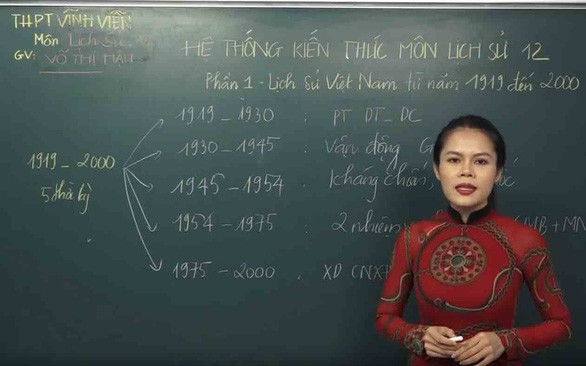 THPT VĨNH VIỄN
Môn Lịch Sử
GV: VÕ THỊ MẬN
HỆ THỐNG KIẾN THỨC MÔN LỊCH SỬ 12
Phần 1 - Lịch sử Việt Nam từ năm 1919 đến 2000
1919 - 1930 : PT DT - DC
1930 - 1945 : Vận động
1919 - 2000
5 thời kỳ
1945 - 1954 : kháng chiến,
1954 - 1975 : 2 nhiệm
1975 - 2000 : XD CNXH